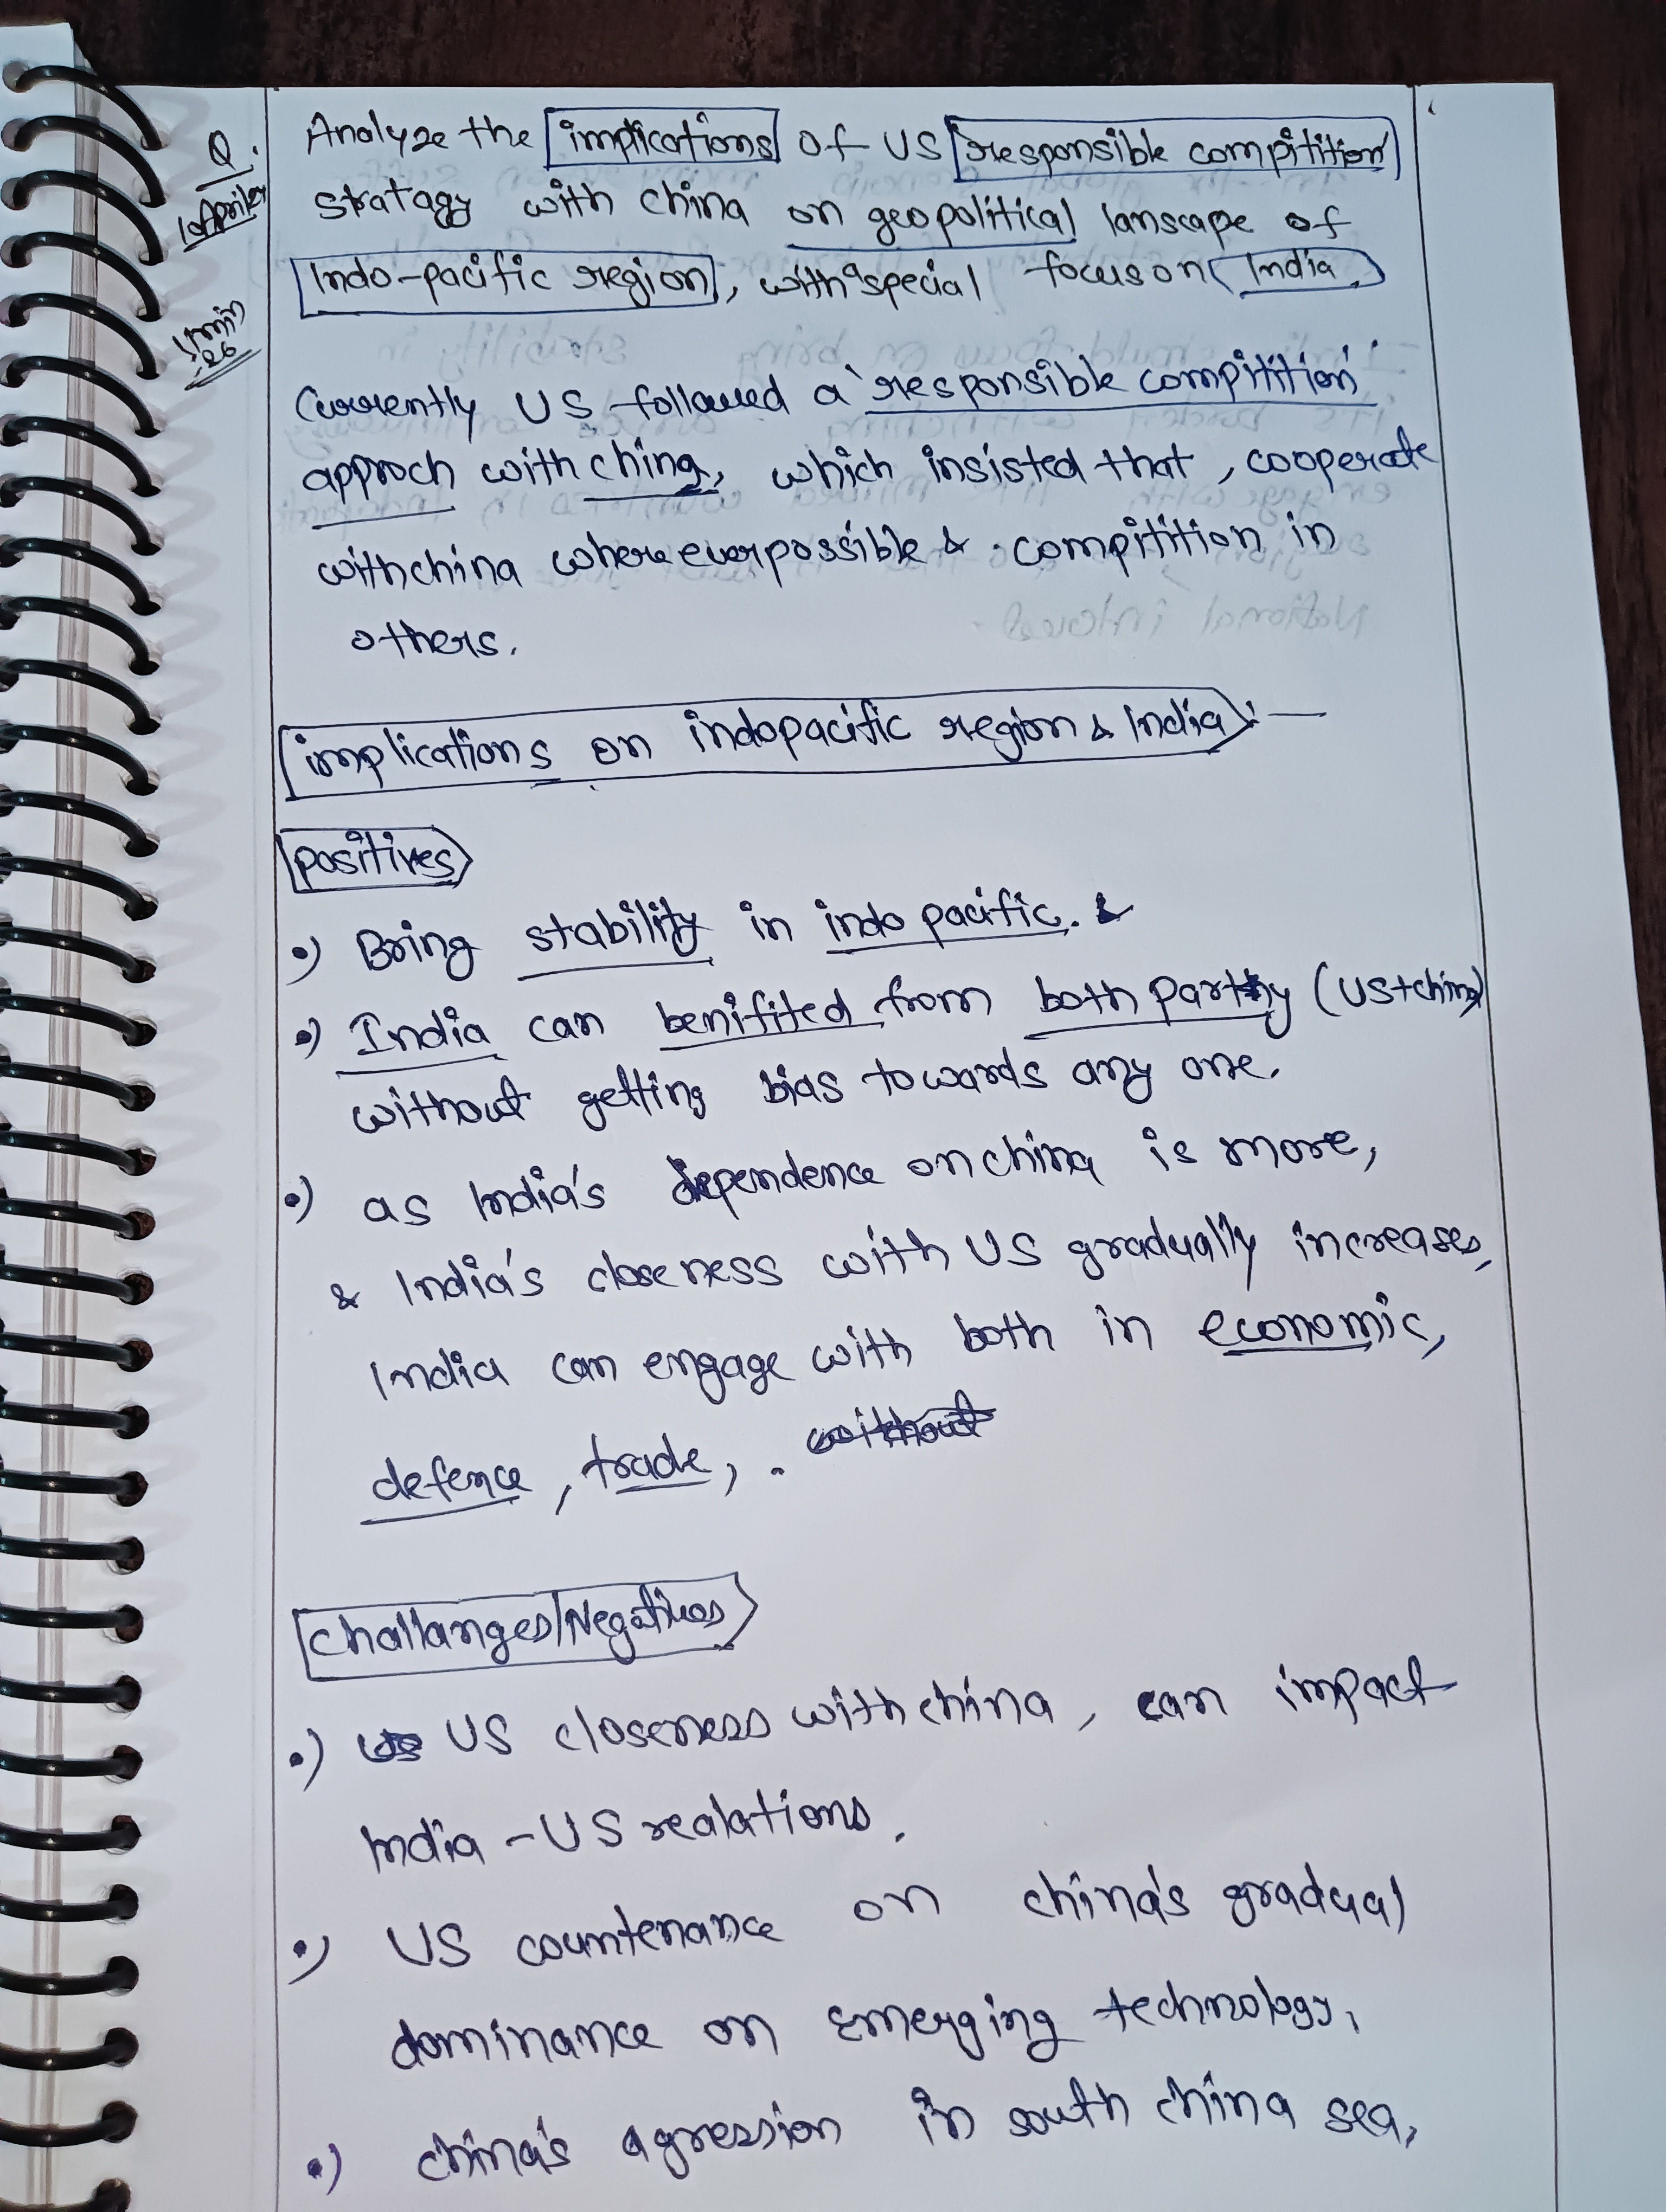 Q.
Analyze the implications of US responsible compitition
stratagy with china on geopolitical lanscape of
Indo-pacific region, with special focus on India.
Currently US followed a 'responsible compitition'
approch with china, which insisted that, cooperate
with china whereever possible & compitition in
others.
implications on indopacific region & India :-
positives
Bring stability in indo pacific. &
India can benifited from both party (US+china)
without getting bias towards any one.
as India's dependence on china is more,
& India's closeness with US gradually increases,
India can engage with both in economic,
defence, trade, . without
challanges/Negatives
US US closeness with china, can impact
India - US realations.
US countenance on china's gradual
dominance on emerging technology,
china's agression in south china sea,